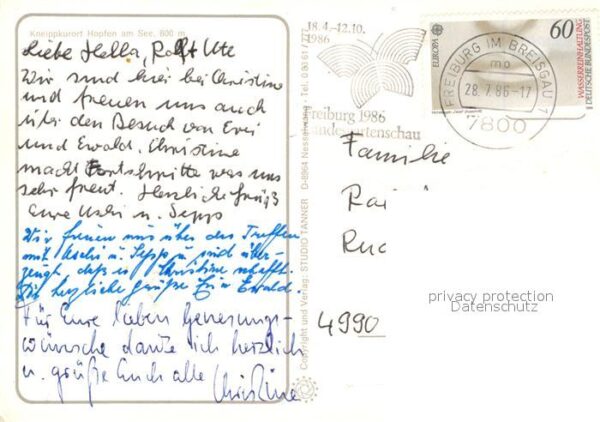 Kneippkurort Hopfen am See, 800 m
Liebe Hella, Rolf Ute
Wir sind hier bei Christine
und freuen uns auch
über den Besuch von Evi
und Ewald. Christine
macht Fortschritte was uns
sehr freut. Herzliche Grüße
Eure Uschi u. Sepp
Wir freuen uns über das Treffen
mit Uschi u. Sepp u. sind über-
zeugt, daß es Christine schafft.
Herzliche Grüße Evi Ewald.
Für Eure lieben Genesungs-
wünsche danke ich herzlich
u. grüße Euch alle Christine
Copyright und Verlag: STUDIO TANNER D-8964 Nesselwang · Tel. 0 83 61 / 777
18.4.-12.10.
1986
Freiburg 1986
Landesgartenschau
FREIBURG IM BREISGAU 1
mo
28.7.86-17
7800
EUROPA
60
WASSERREINHALTUNG
DEUTSCHE BUNDESPOST
Familie
Rai
Ruc
4990
privacy protection
Datenschutz